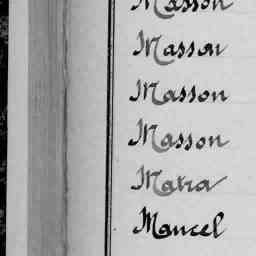 Masson
Masson
Masson
Masson
Matra
Mancel